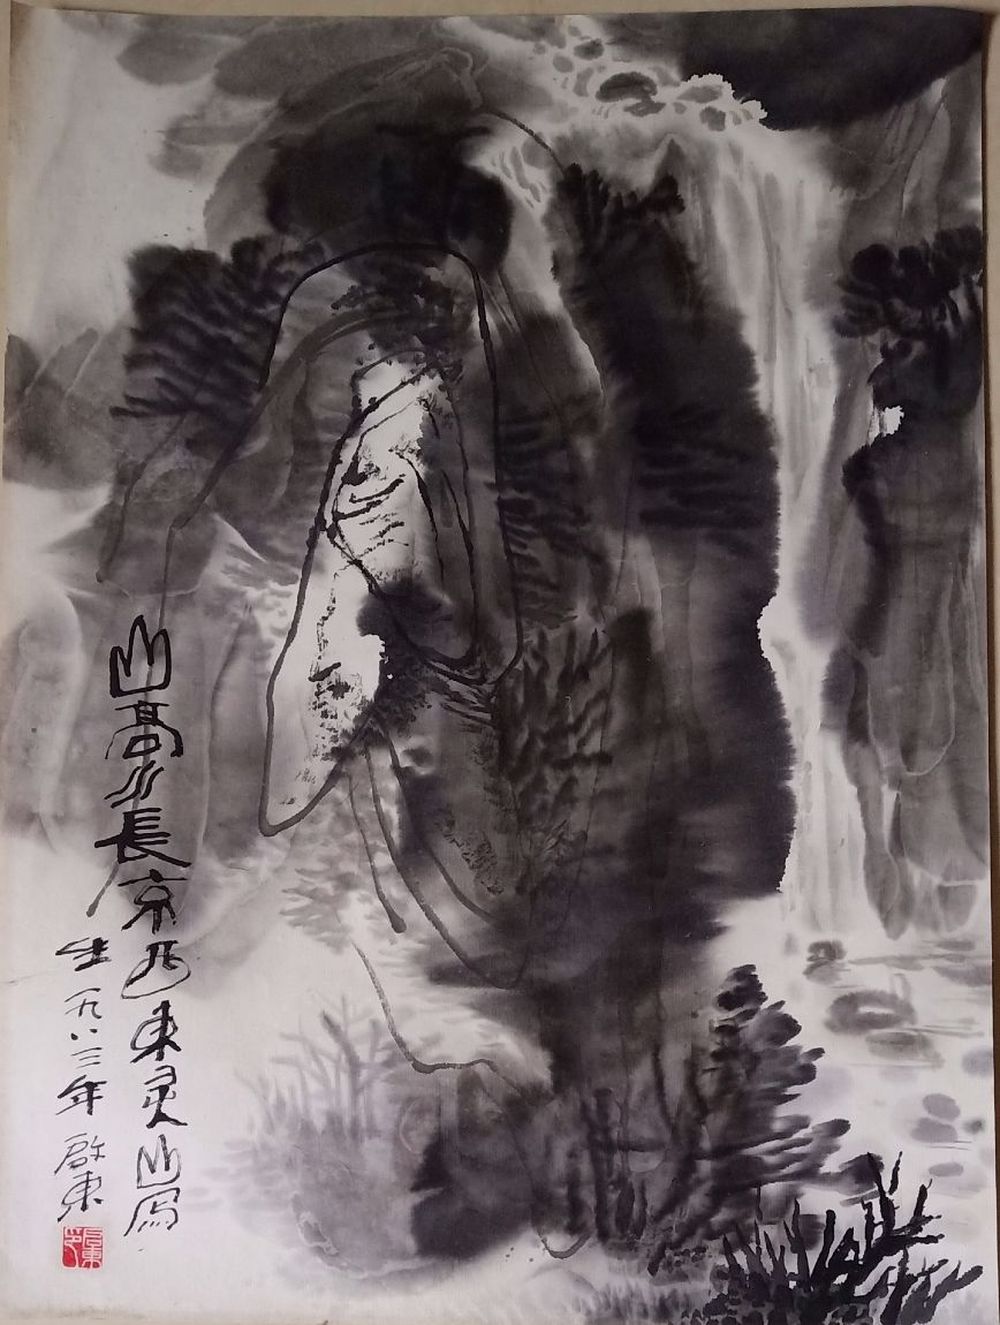 山高水長京西東灵山写
生一九八三年啟東